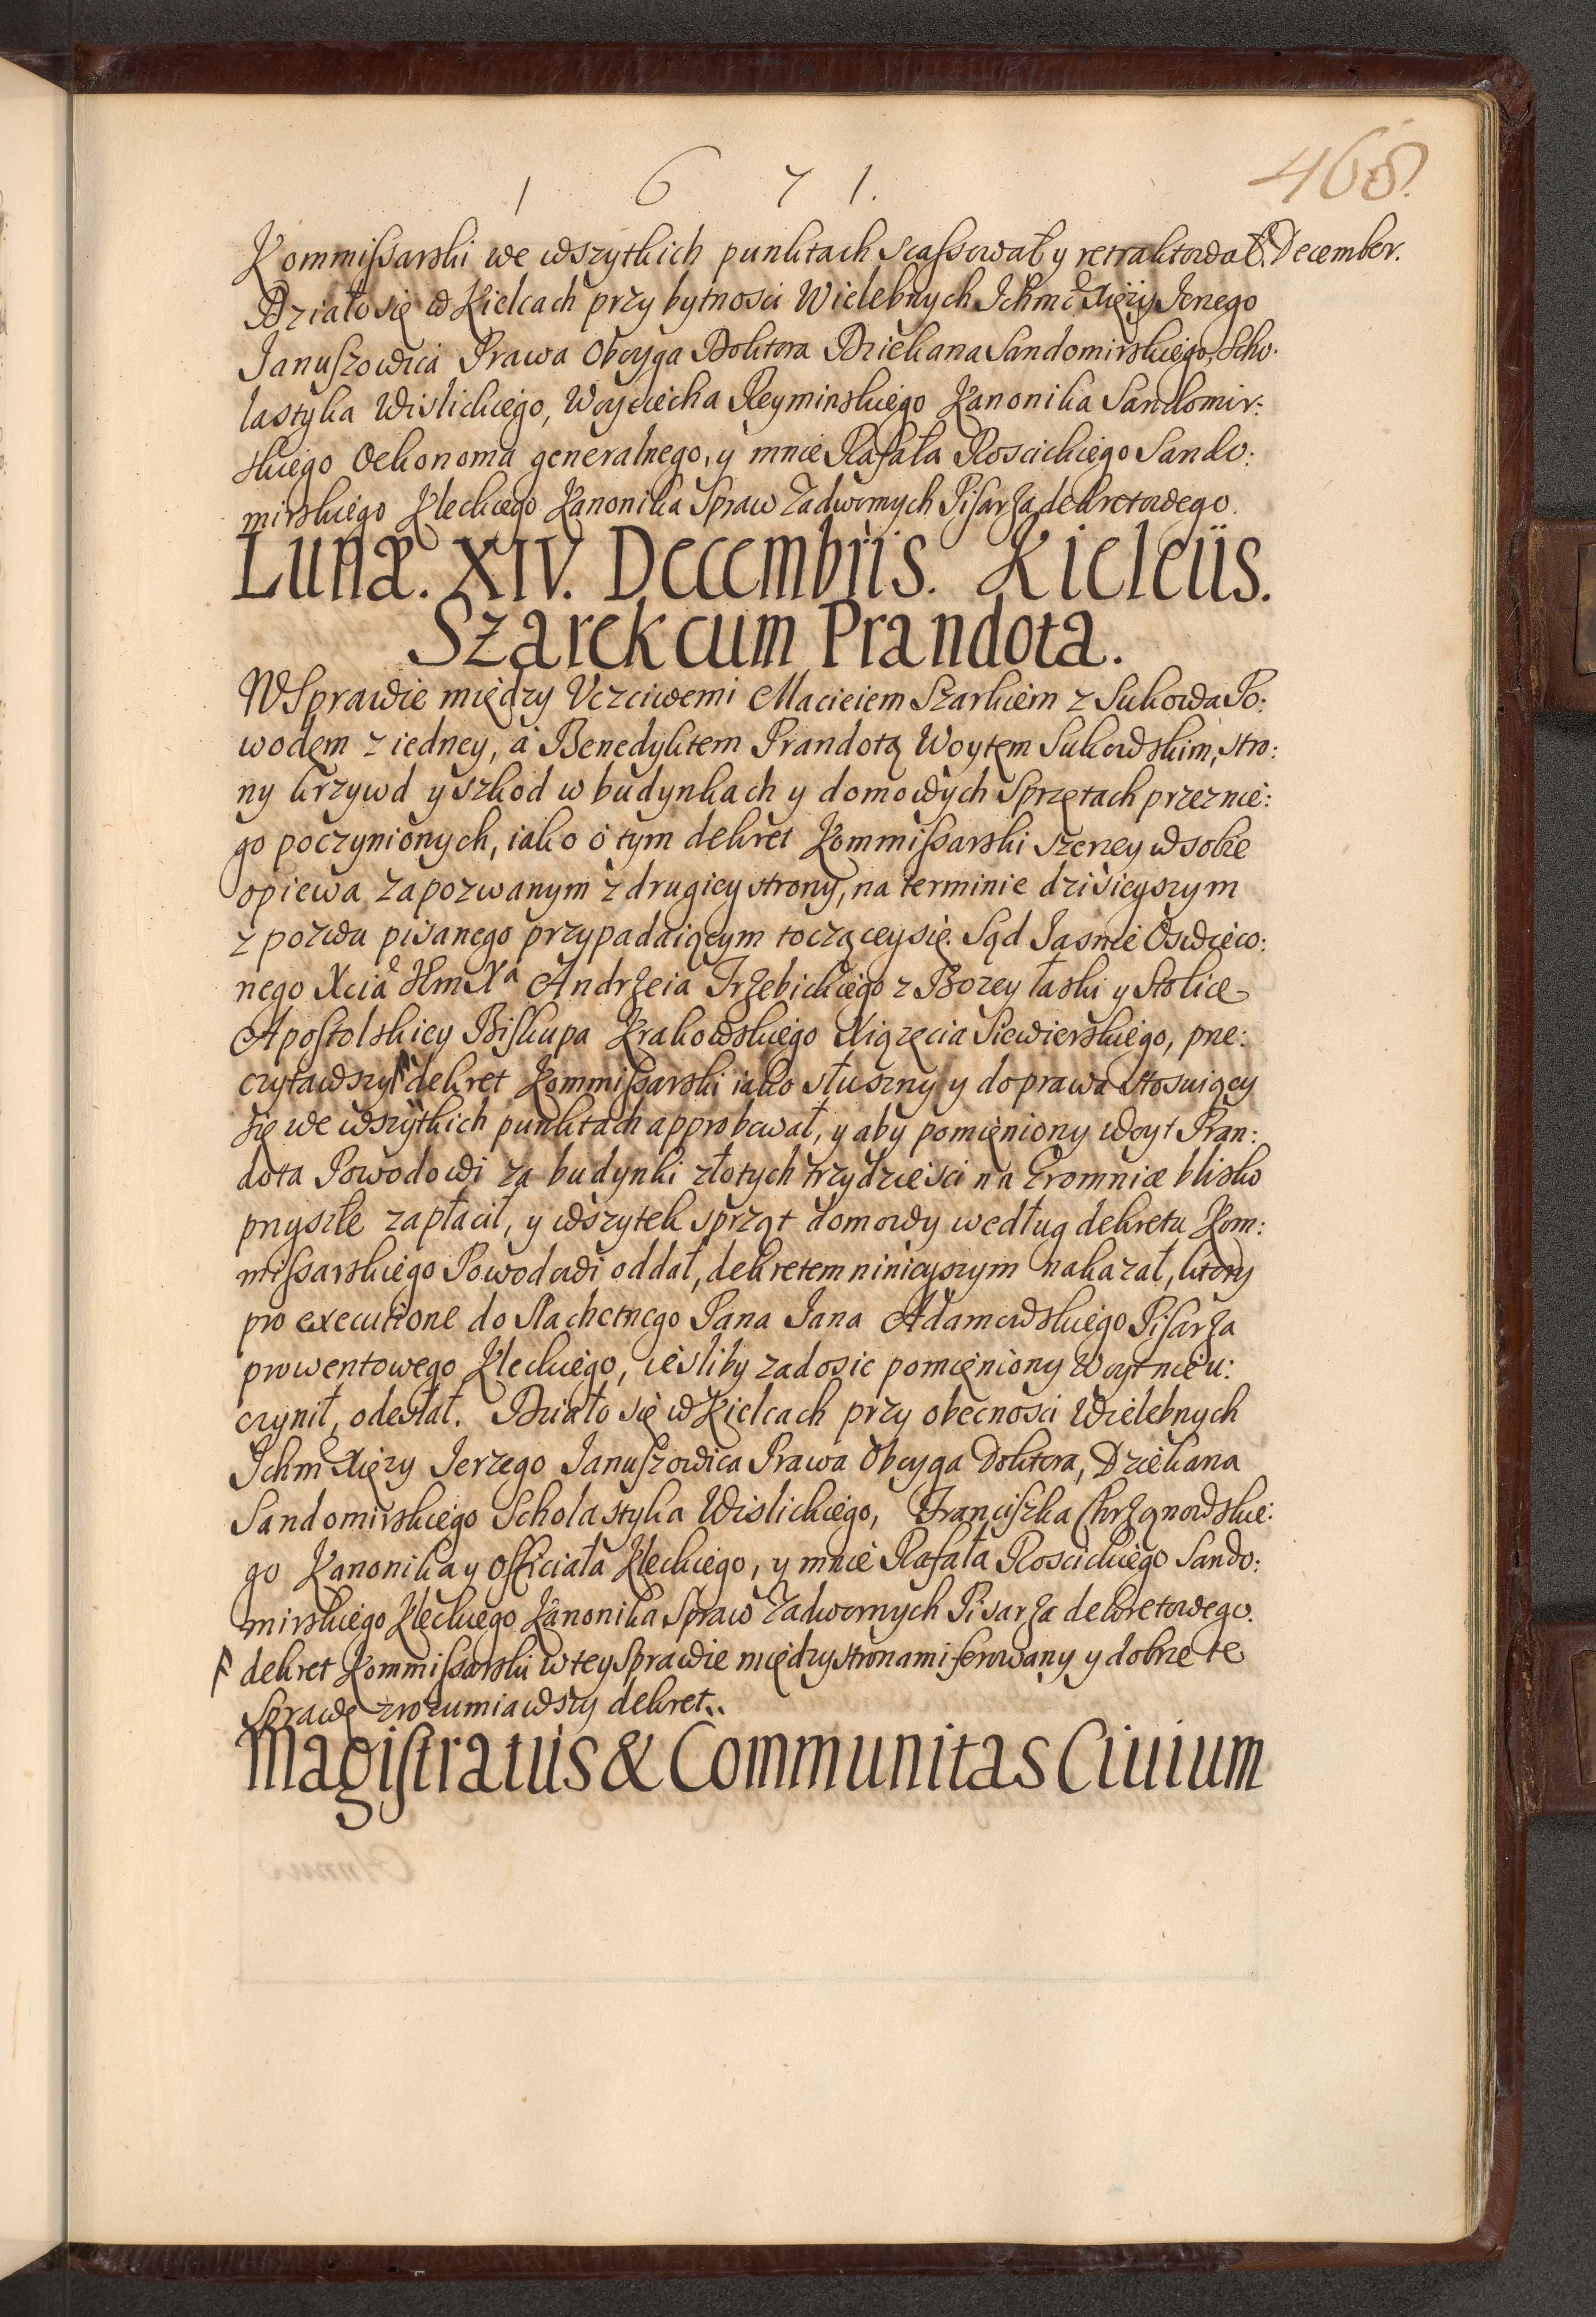 1 6 7 1.
468.
Kommissarski we wszytkich punktach scassował y retraktował. December.
Działo się w Kielcach przy bytnosci Wielebnych Ichmć Xięży Jerzego
Januszowica Prawa Oboyga Doktora Dziekana Sandomirskiego, Scho:
lastyka Wislickiego, Woyciecha Reyminskiego Kanonika Sandomir:
skiego Oekonoma generalnego, y mnie Rafała Roscickiego Sando:
mirskiego Kleckiego Kanonika Spraw Zadwornych Pisarza dekretowego.
Lunæ. XIV. Decembris. Kielciis.
Szarek cum Prandota.
W Sprawie między Vczciwemi Macieiem Szarkiem z Sukowa Po:
wodem z iedney, a Benedyktem Prandotą Woytem Sukowskim, stro:
ny krzywd y szkod w budynkach y domowych sprzętach przez nie:
go poczynionych, iako o tym dekret Kommissarski szerzey w sobie
opiewa, zapozwanym z drugiey strony, na terminie dzisieyszym
z pozwu pisanego przypadaiącym toczącey się. Sąd Jasnie Oswieco:
nego Xcia Jeo Hm Xa Andrzeia Trzebickiego z Bozey łaski y Stolice
Apostolskiey Biskupa Krakowskiego Xiązęcia Siewierskiego, prze:
czytawszy dekret Kommissarski iako słuszny y do prawa stosuiący
się we wszytkich punktach approbował, y aby pomięniony woyt Pran:
dota Powodowi za budynki złotych trzydziesci na Gromnice blisko
przyszłe zapłacił, y wszytek sprząt domowy według dekretu Kom:
missarskiego Powodowi oddał, dekretem ninieyszym nakazał, ktory
pro executione do Slachetnego Pana Jana Adamowskiego Pisarza
prowentowego Kleckiego, iesliby zadosic pomięniony Woyt nie u:
czynił, odesłał. Działo się w Kielcach przy obecnosci Wielebnych
Ichmć Xięzy Jerzego Januszowica Prawa Oboyga Doktora, Dziekana
Sandomirskiego Scholastyka Wislickiego, Franciszka Chrząnowskie:
go Kanonika y Officiała Kleckiego, y mnie Rafała Roscickiego Sando:
mirskiego Kleckiego Kanonika Spraw Zadwornych Pisarza dekretowego.
dekret Kommissarski w tey sprawie między stronami ferowany y dobrze te
sprawę zrozumiawszy dekret.
Magistratus & Communitas Ciuium